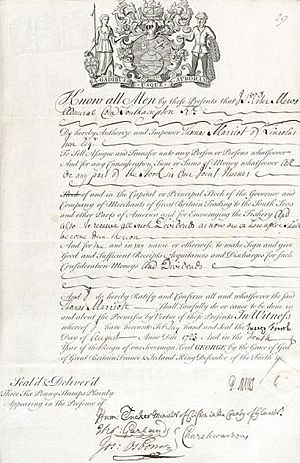 29
GADIBUS USQUE AURORAM
Know all Men by these Presents that I Sr. Peter Mews
of Southampton Knt.
Do hereby Authorize and Impower Thomas Marriott of Lincolns
Inn Esqr.
To Sell Assigne and Transfer unto any Person or Persons whatsoever
And for any Consideration Sum or Sums of Money whatsoever All
or any part of the Stock in Our Joint Names
Stock of and in the Capital or Principal Stock of the Governor and
Company of Merchants of Great Britain Trading to the South Seas
and other Parts of America and for Encouraging the Fishery And
also to receive all such Dividends as now are or hereafter shall
become due thereon
And for me and in my name or otherwise to make Sign and give
Good and Sufficient Receipts Acquittances and Discharges for such
Consideration Moneys and Dividends
And I do hereby Ratify and Confirm all and whatsoever the said
Thomas Marriott Shall Lawfully do or cause to be done in
and about the Premisses by Virtue of these Presents In Witness
whereof I have hereunto Set my hand and Seal the Twenty Fourth
Day of August Anno Dom 1723 And in the Tenth
Year of the Reign of our Sovereign Lord GEORGE by the Grace of God
of Great Britain France & Ireland King Defender of the Faith
Seal'd & Deliver'd
Three Six Penny Stamps Plainly
Appearing in the Presence of
P Mews
Tucker Minister of in the County of
Churchwardens